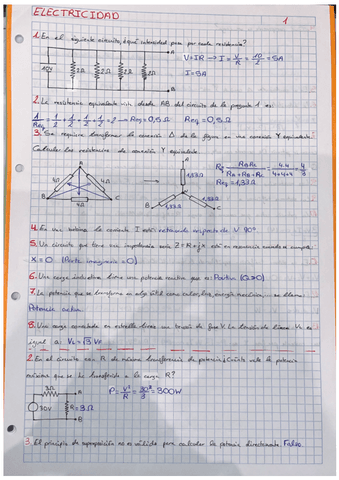 ELECTRICIDAD
1
1. En el siguiente circuito, ¿qué intensidad pasa por cada resistencia?
A
10V
2Ω 2Ω 2Ω 2Ω
B
V=IR → I = V/R = 10/2 = 5A
I = 5A
2. La resistencia equivalente vista desde AB del circuito de la pregunta 1 es:
1/Req = 1/2 + 1/2 + 1/2 + 1/2 = 2 → Req = 0,5Ω Req = 0,5Ω
3. Se requiere transformar la conexión Δ de la figura en una conexión Y equivalente.
Calcular las resistencias de conexión Y equivalente
A
4Ω 4Ω
4Ω
B C
A
1,33Ω
1,33Ω 1,33Ω
B C
4·4/4+4+4 = 4/3
Req = 1,33Ω
4. En una bobina la corriente I está retrasada respecto de V 90°
5. Un circuito que tiene una impedancia serie Z = R + jx está en resonancia cuando se cumple:
X = 0 (Parte imaginaria = 0)
6. Una carga inductiva tiene una potencia reactiva que es: Positiva (Q>0)
7. La potencia que se transforma en algo útil como calor, luz, energía mecánica,... se llama
Potencia activa
8. Una carga conectada en estrella tiene una tensión de fase V. La tensión de línea VL es
igual a: VL = √3 Vf
2. En el circuito con R de máxima transferencia de potencia ¿Cuánto vale la potencia
máxima que se ha transferido a la carga R?
3Ω A
30V R=3Ω
B
P = V²/R = 30²/3 = 300W
3. El principio de superposición no es válido para calcular la potencia directamente Falso.